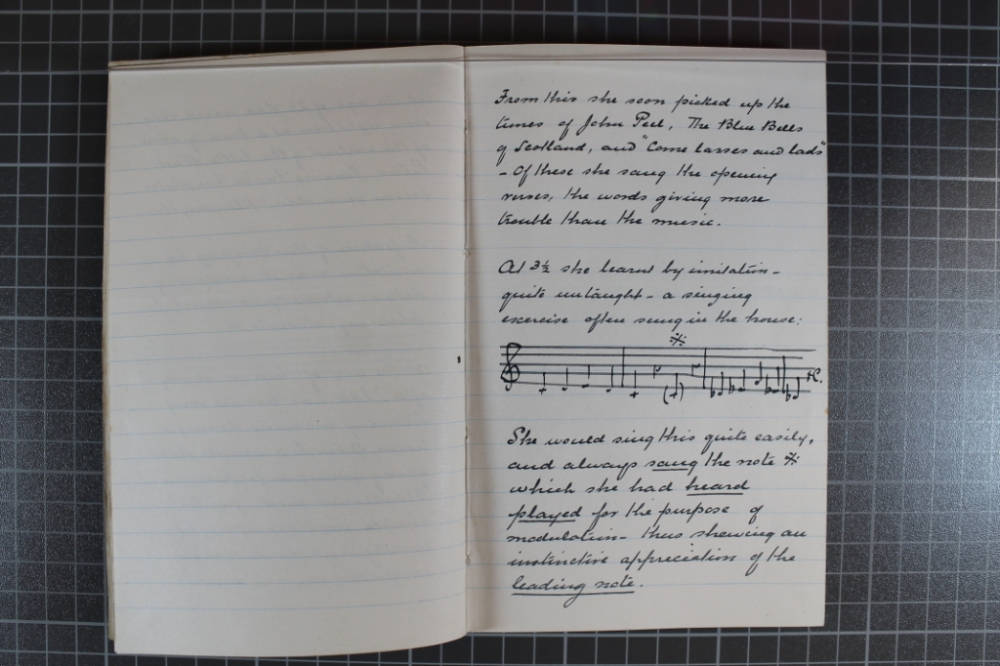 From this she soon picked up the
tunes of John Peel, The Blue Bells
of Scotland, and "Come lasses and lads"
- Of these she sang the opening
verses, the words giving more
trouble than the music.
At 3½ she learnt by imitation -
quite untaught - a singing
exercise often sung in the house:
※
etc.
She would sing this quite easily,
and always sang the note ※
which she had heard
played for the purpose of
modulation - thus shewing an
instinctive appreciation of the
leading note.